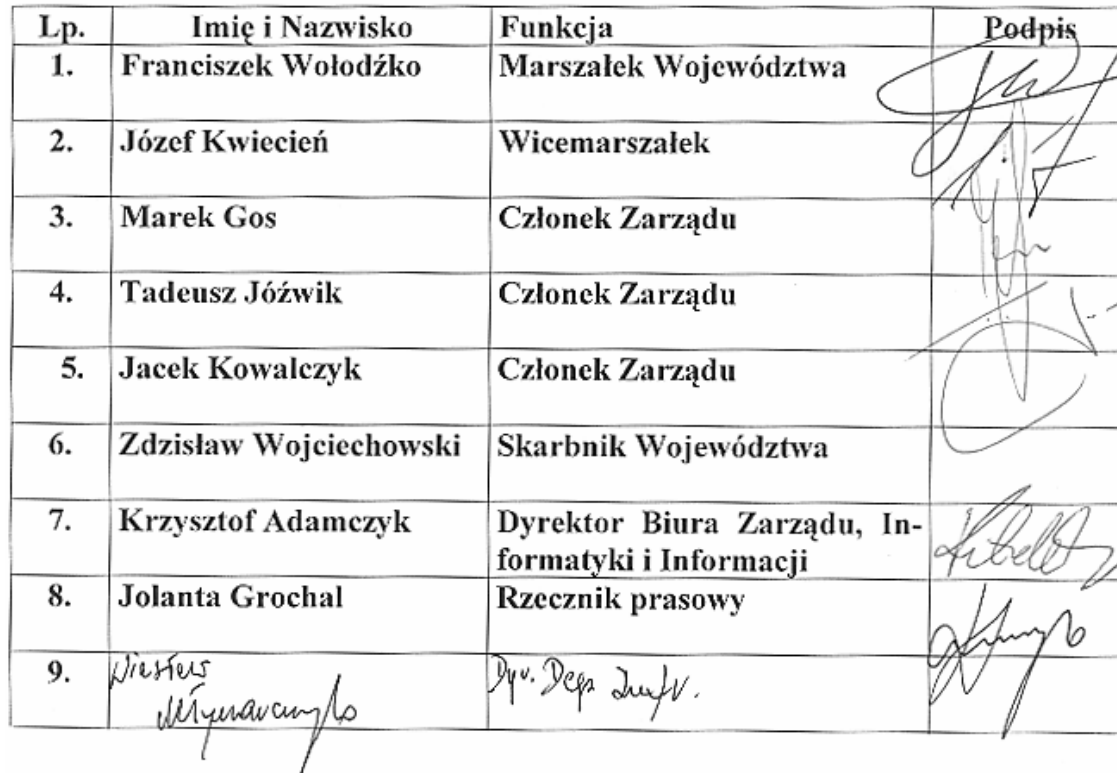 Lp. Imię i Nazwisko Funkcja Podpis
1. Franciszek Wołodźko Marszałek Województwa
2. Józef Kwiecień Wicemarszałek
3. Marek Gos Członek Zarządu
4. Tadeusz Jóźwik Członek Zarządu
5. Jacek Kowalczyk Członek Zarządu
6. Zdzisław Wojciechowski Skarbnik Województwa
7. Krzysztof Adamczyk Dyrektor Biura Zarządu, In-
formatyki i Informacji
8. Jolanta Grochal Rzecznik prasowy
9. Wiesław Dyr. Dep.
Młynarczyk